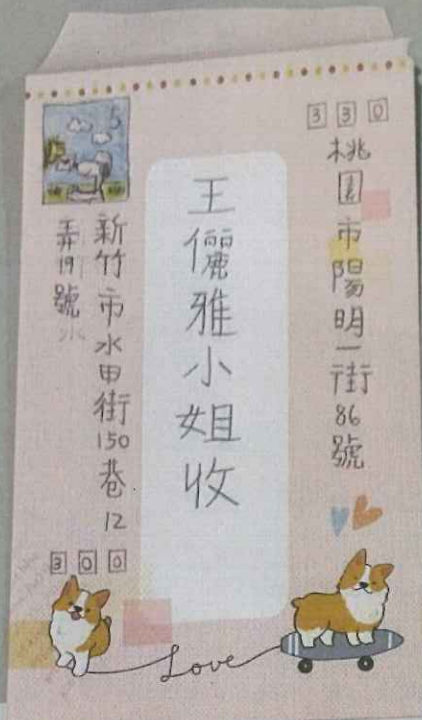 330
桃園市陽明一街86號
王儷雅小姐收
5
新竹市水田街150巷12
弄19號
300
Love